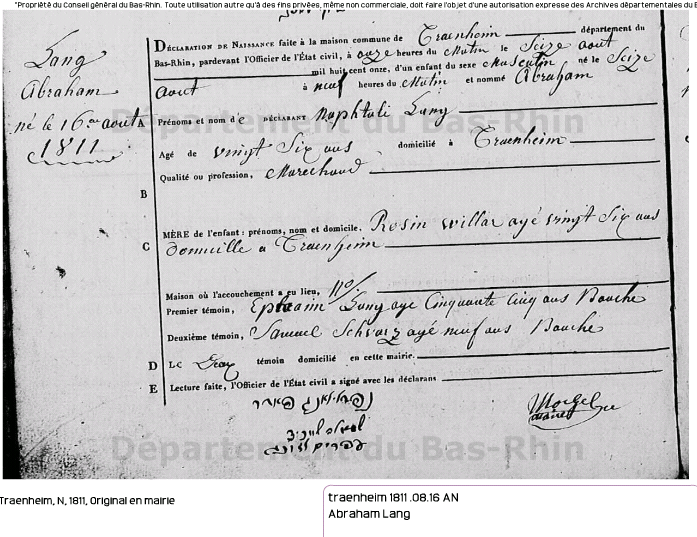 "Propriété du Conseil général du Bas-Rhin. Toute utilisation autre qu'à des fins privées, même non commerciale, doit faire l'objet d'une autorisation expresse des Archives départementales du B
Lang
Abraham
né le 16 aout
1811
DÉCLARATION DE NAISSANCE faite à la maison commune de Traenheim département du
Bas-Rhin, pardevant l'Officier de l'État civil, à onze heures du Matin le Seize aout
mil huit cent onze, d'un enfant du sexe Masculin né le Seize
aout à neuf heures du Matin et nommé Abraham
A Prénoms et nom d'e DÉCLARANT Naphtali Lang
Agé de vingt Six ans domicilié à Traenheim
Qualité ou profession, Marechand
B
MÈRE de l'enfant : prénoms, nom et domicile, Rosin Willar agé vingt Six ans
C domicille a Traenheim
Maison où l'accouchement a eu lieu, 110
Premier témoin, Ephraim Lang age Cinquante Cinq ans Bouché
Deuxième témoin, Samuel Schwarz agé neuf ans Bouché
D Le témoin domicilié en cette mairie.
E Lecture faite, l'Officier de l'État civil a signé avec les déclarans
Département du Bas-Rhin
Département du Bas-Rhin
Traenheim, N, 1811, Original en mairie
traenheim 1811 .08.16 AN
Abraham Lang